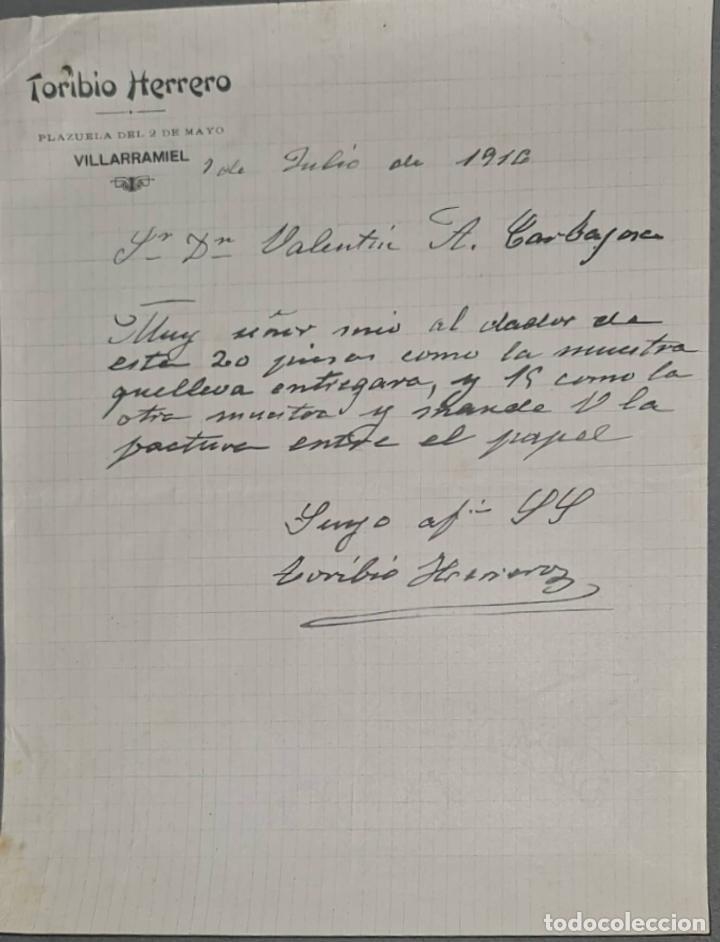 Toribio Herrero
PLAZUELA DEL 2 DE MAYO
VILLARRAMIEL
1 de Julio de 1916
Sr Dn Valentin A. Carbajosa
Muy señor mio al dador de
esta 20 piezas como la muestra
quelleva entregara, y 15 como la
otra muestra y mande V la
factura entre el papel
Suyo af.. SS
Toribio Herrero
todocoleccion